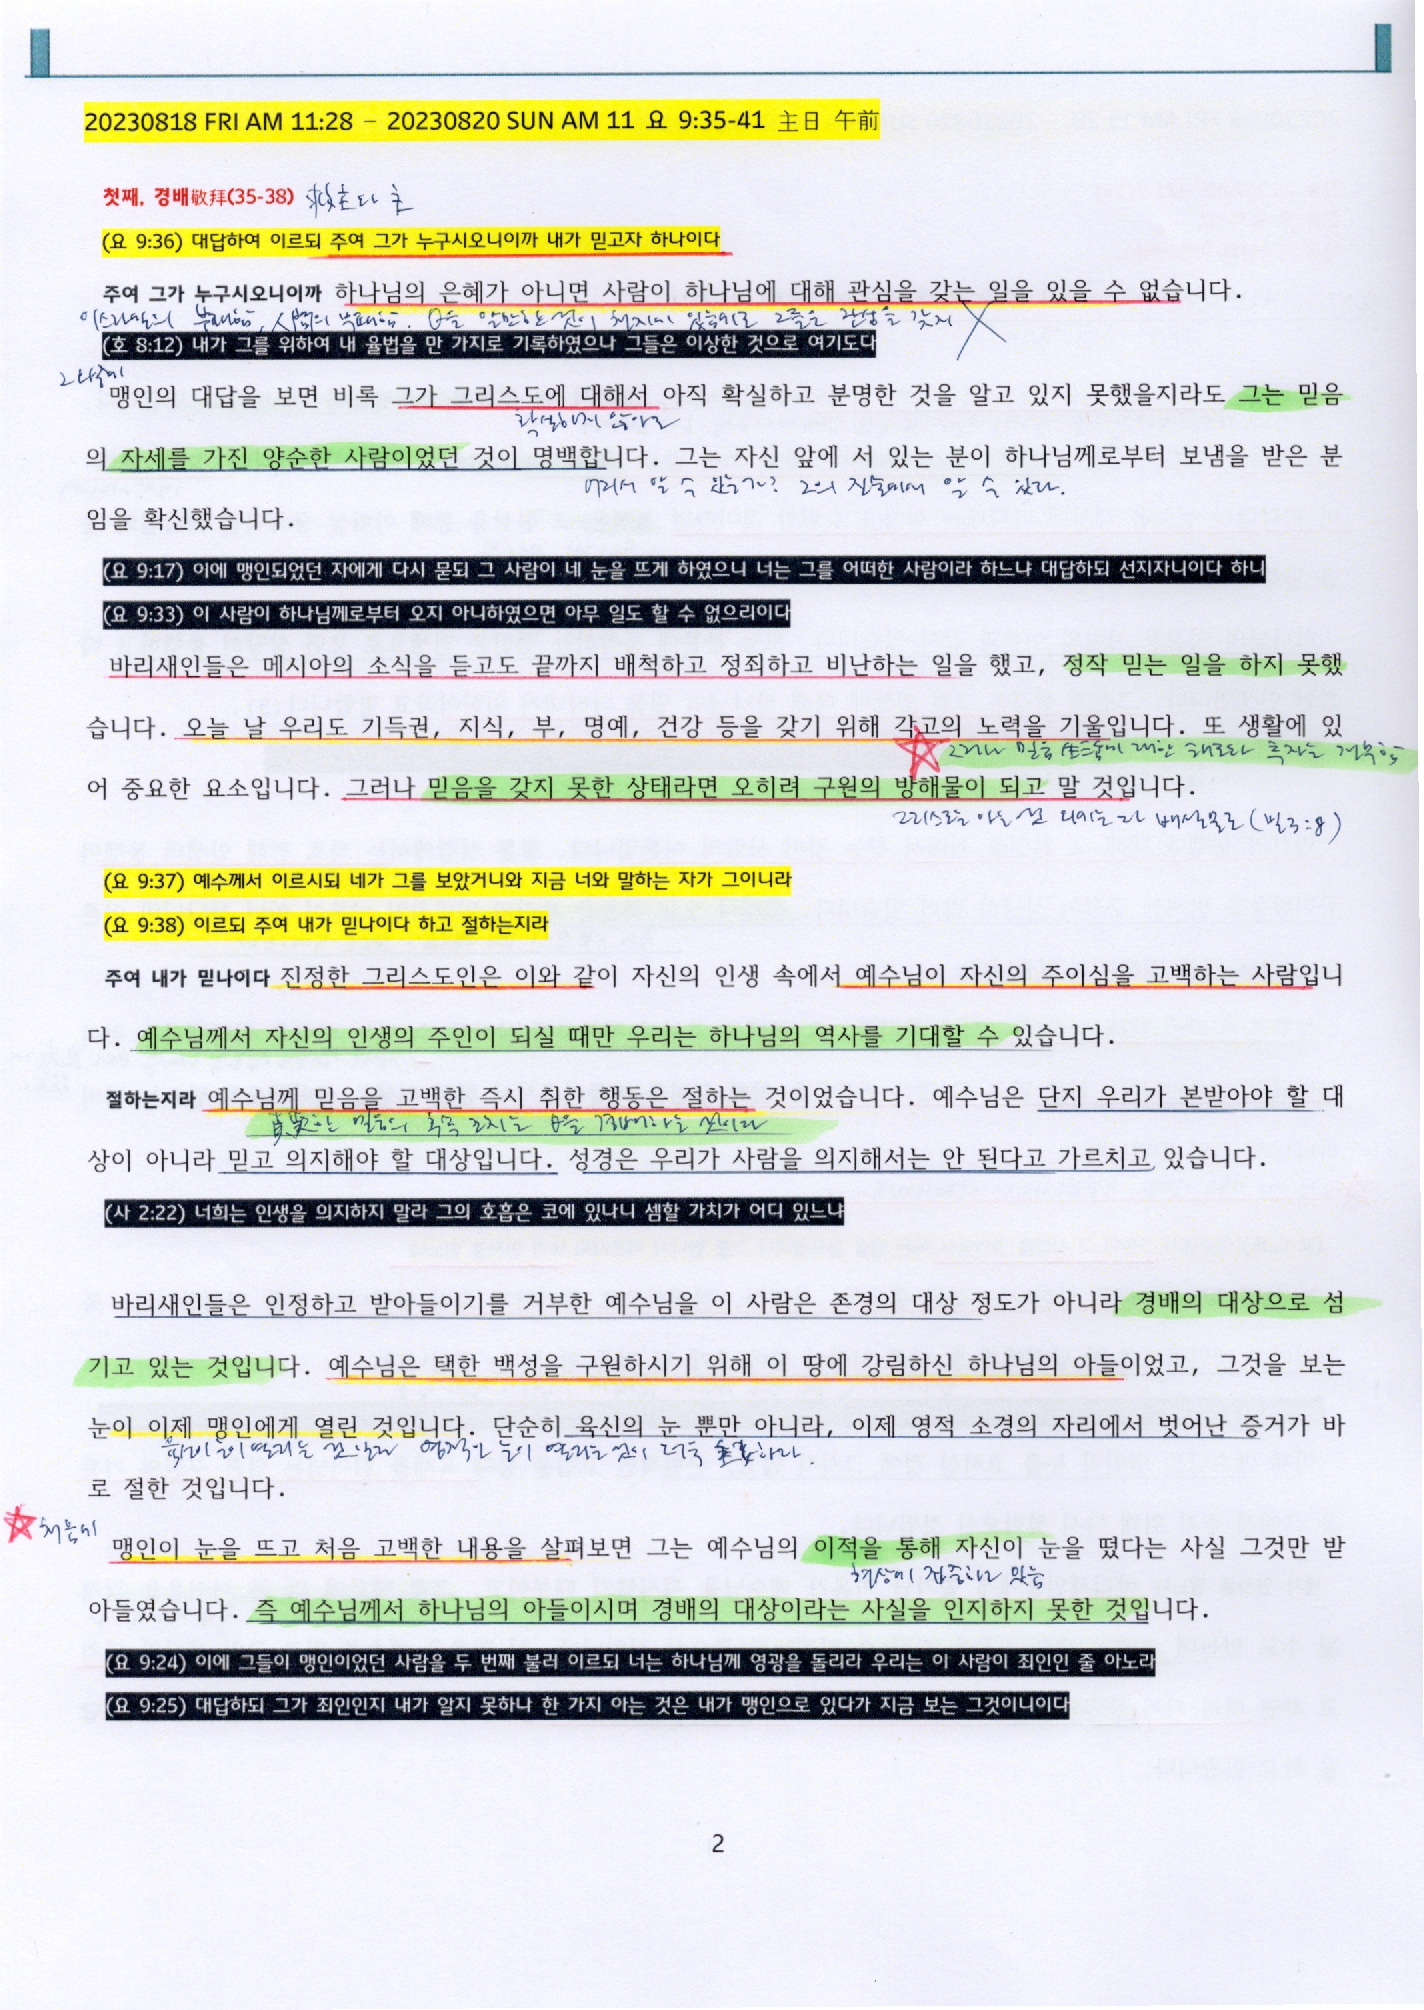 20230818 FRI AM 11:28 – 20230820 SUN AM 11 요 9:35-41 主日 午前
첫째, 경배敬拜(35-38) 救主다 主
(요 9:36) 대답하여 이르되 주여 그가 누구시오니이까 내가 믿고자 하나이다
주여 그가 누구시오니이까 하나님의 은혜가 아니면 사람이 하나님에 대해 관심을 갖는 일을 있을 수 없습니다.
(호 8:12) 내가 그를 위하여 내 율법을 만 가지로 기록하였으나 그들은 이상한 것으로 여기도다
그 나중에
맹인의 대답을 보면 비록 그가 그리스도에 대해서 아직 확실하고 분명한 것을 알고 있지 못했을지라도 그는 믿음
의 자세를 가진 양순한 사람이었던 것이 명백합니다. 그는 자신 앞에 서 있는 분이 하나님께로부터 보냄을 받은 분
어디서 알 수 있는가? 그의 진술에서 알 수 있다.
임을 확신했습니다.
(요 9:17) 이에 맹인되었던 자에게 다시 묻되 그 사람이 네 눈을 뜨게 하였으니 너는 그를 어떠한 사람이라 하느냐 대답하되 선지자니이다 하니
(요 9:33) 이 사람이 하나님께로부터 오지 아니하였으면 아무 일도 할 수 없으리이다
바리새인들은 메시아의 소식을 듣고도 끝까지 배척하고 정죄하고 비난하는 일을 했고, 정작 믿는 일을 하지 못했
습니다. 오늘 날 우리도 기득권, 지식, 부, 명예, 건강 등을 갖기 위해 각고의 노력을 기울입니다. 또 생활에 있
그러나 믿음生活에 대한 태도와 투자는 전무함
어 중요한 요소입니다. 그러나 믿음을 갖지 못한 상태라면 오히려 구원의 방해물이 되고 말 것입니다.
그리스도를 아는 것 외에는 다 배설물로 (빌 3:8)
(요 9:37) 예수께서 이르시되 네가 그를 보았거니와 지금 너와 말하는 자가 그이니라
(요 9:38) 이르되 주여 내가 믿나이다 하고 절하는지라
주여 내가 믿나이다 진정한 그리스도인은 이와 같이 자신의 인생 속에서 예수님이 자신의 주이심을 고백하는 사람입니
다. 예수님께서 자신의 인생의 주인이 되실 때만 우리는 하나님의 역사를 기대할 수 있습니다.
절하는지라 예수님께 믿음을 고백한 즉시 취한 행동은 절하는 것이었습니다. 예수님은 단지 우리가 본받아야 할 대
상이 아니라 믿고 의지해야 할 대상입니다. 성경은 우리가 사람을 의지해서는 안 된다고 가르치고 있습니다.
(사 2:22) 너희는 인생을 의지하지 말라 그의 호흡은 코에 있나니 셈할 가치가 어디 있느냐
바리새인들은 인정하고 받아들이기를 거부한 예수님을 이 사람은 존경의 대상 정도가 아니라 경배의 대상으로 섬
기고 있는 것입니다. 예수님은 택한 백성을 구원하시기 위해 이 땅에 강림하신 하나님의 아들이었고, 그것을 보는
눈이 이제 맹인에게 열린 것입니다. 단순히 육신의 눈 뿐만 아니라, 이제 영적 소경의 자리에서 벗어난 증거가 바
로 절한 것입니다.
처음에
맹인이 눈을 뜨고 처음 고백한 내용을 살펴보면 그는 예수님의 이적을 통해 자신이 눈을 떴다는 사실 그것만 받
현상에 집중하고 있음
아들였습니다. 즉 예수님께서 하나님의 아들이시며 경배의 대상이라는 사실을 인지하지 못한 것입니다.
(요 9:24) 이에 그들이 맹인이었던 사람을 두 번째 불러 이르되 너는 하나님께 영광을 돌리라 우리는 이 사람이 죄인인 줄 아노라
(요 9:25) 대답하되 그가 죄인인지 내가 알지 못하나 한 가지 아는 것은 내가 맹인으로 있다가 지금 보는 그것이니이다
2